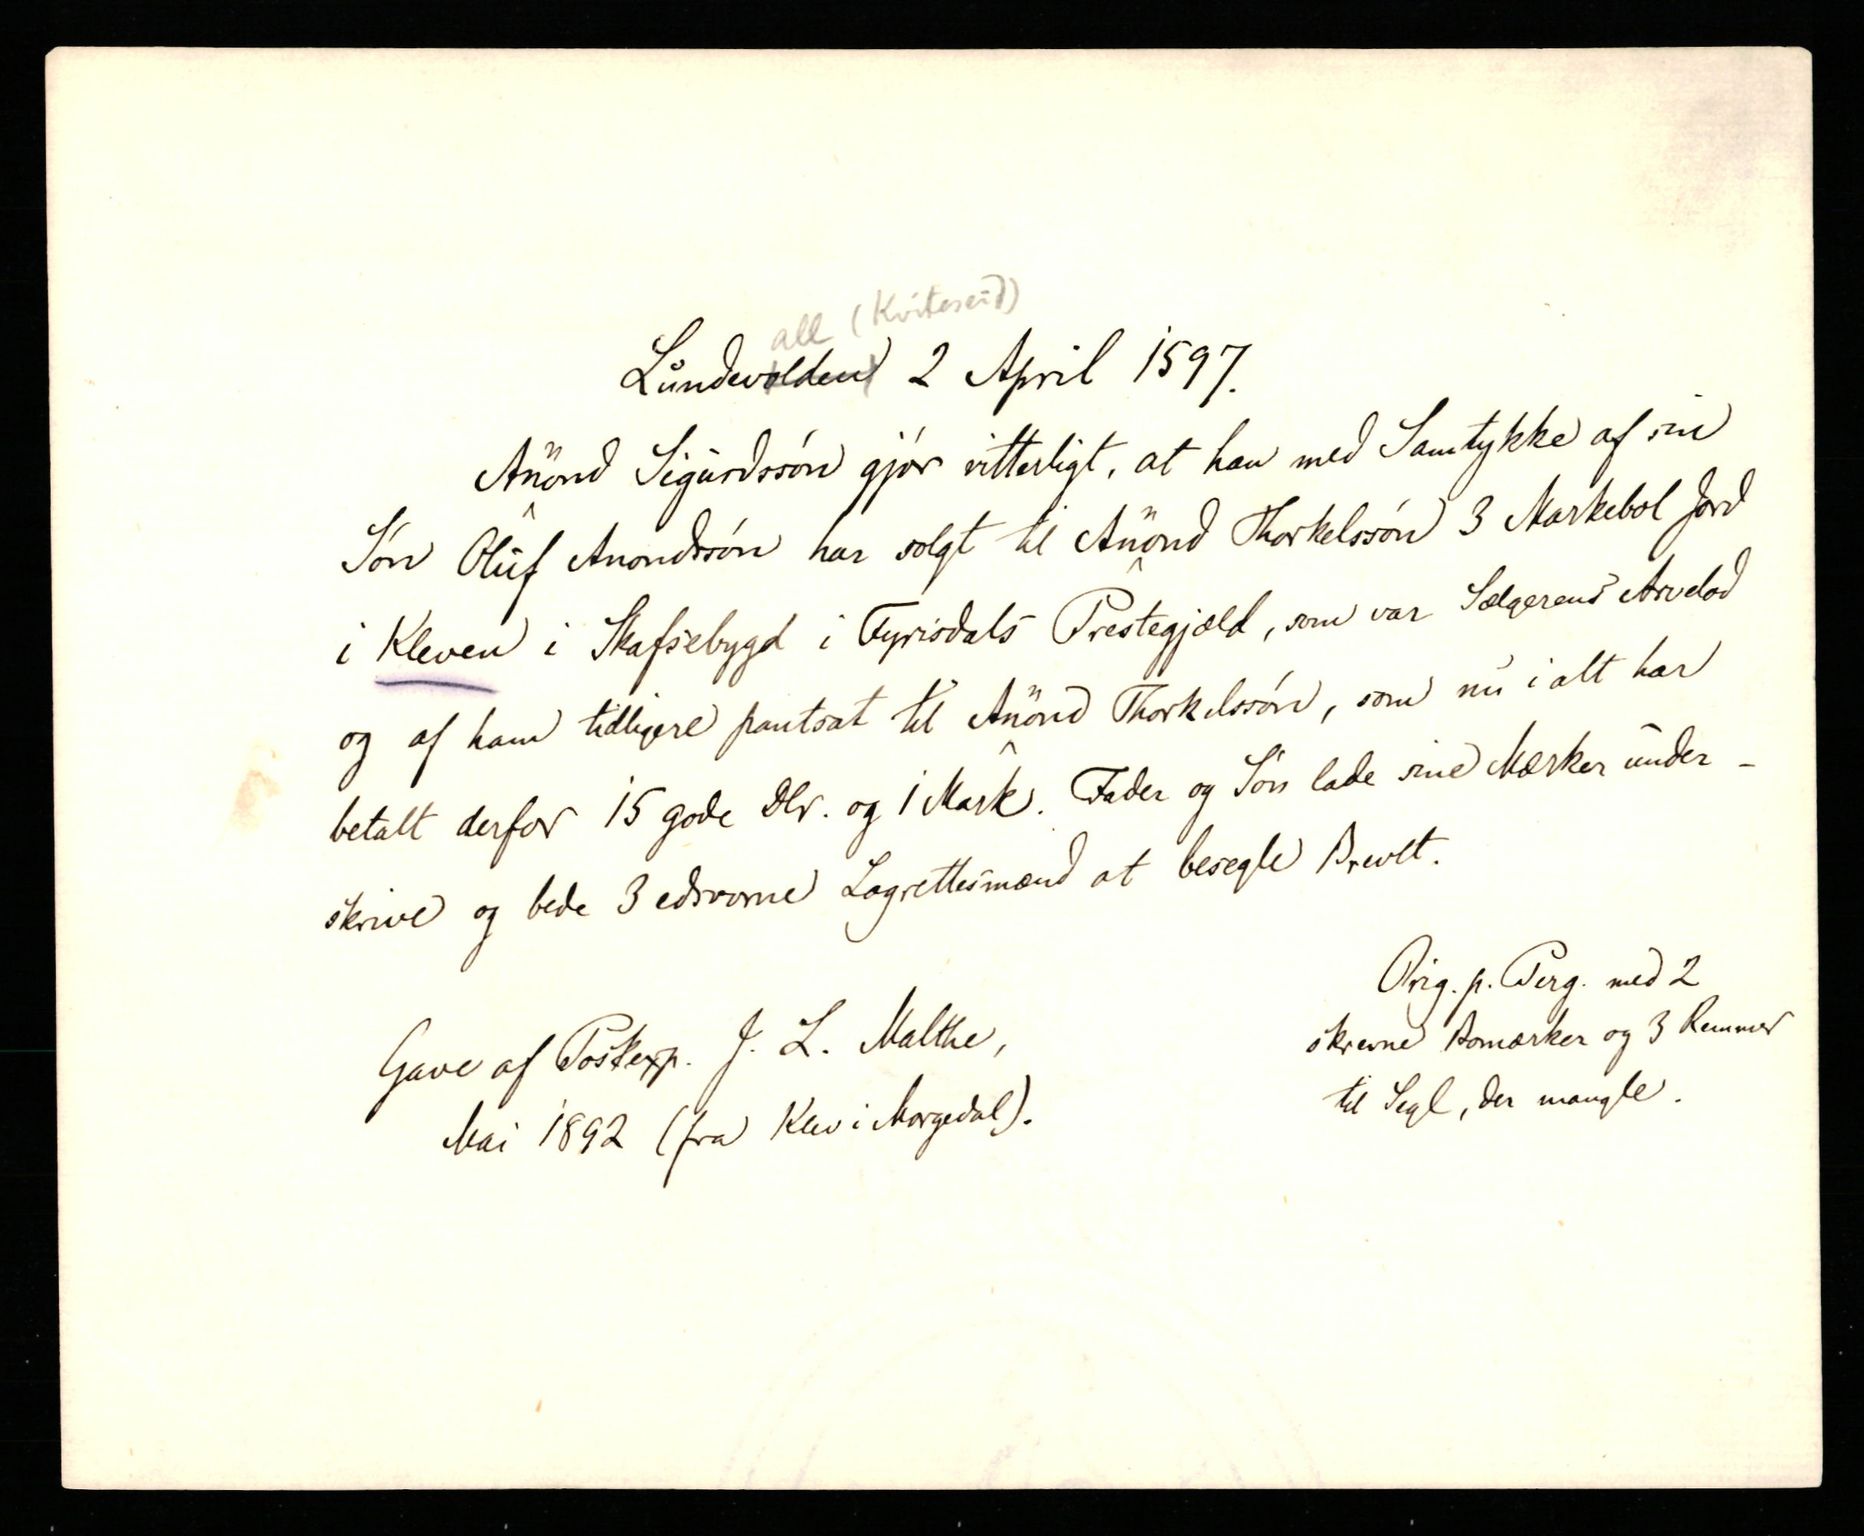 all (Kviteseid)
Lundevolden 2 April 1597.
Anönd Sigurdssön gjör vitterligt, at han med Samtykke af sin
Sön Oluf Anondssön har solgt til Anönd Thorkelssön 3 Markebol Jord
i Kleven i Skafsebygd i Fyrisdals Prestegjæld, som var Sælgerens Arvelod
og af ham tidligere pantsat til Anönd Thorkelssön, som nu i alt har
betalt derfor 15 gode Dlr. og 1 Mark. Fader og Sön lade sine Mærker under-
skrive og bede 3 edsvorne Lagrettesmænd at besegle Brevet.
Orig. p. Perg. med 2
skrevne Bomærker og 3 Remmer
til Segl, der mangle.
Gave af Postexp. J. L. Malthe,
Mai 1892 (fra Klev i Morgedal).